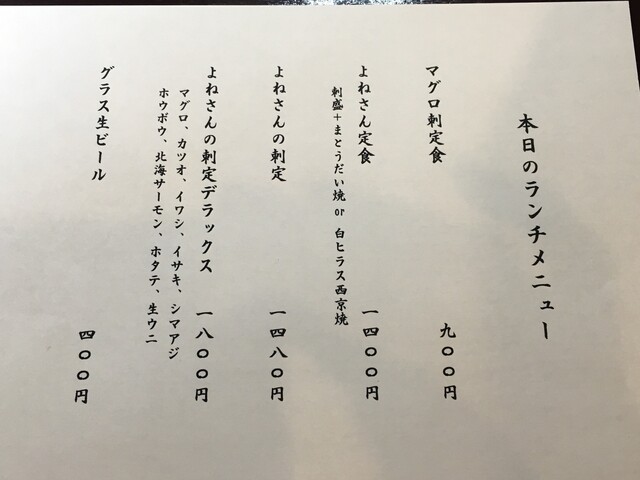 本日のランチメニュー
マグロ刺定食 九〇〇円
よねさん定食 一四〇〇円
刺盛+まとうだい焼 or 白ヒラス西京焼
よねさんの刺定 一四八〇円
よねさんの刺定デラックス 一八〇〇円
マグロ、カツオ、イワシ、イサキ、シマアジ
ホウボウ、北海サーモン、ホタテ、生ウニ
グラス生ビール 四〇〇円